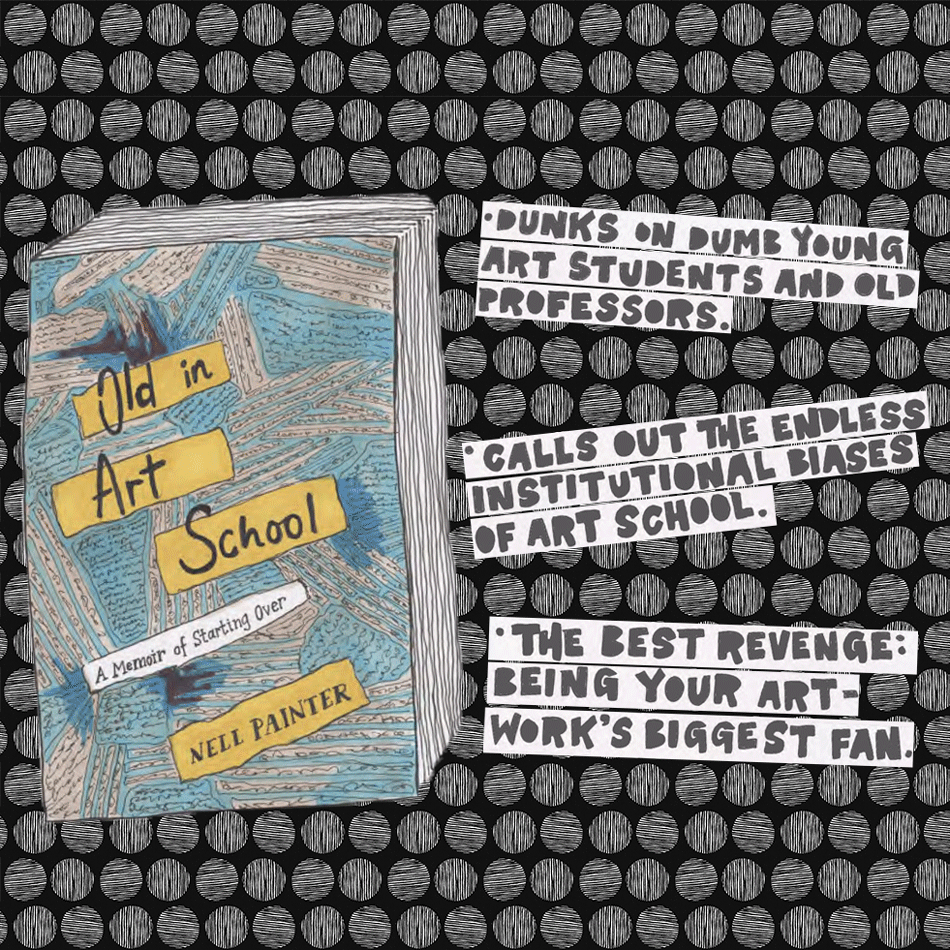 Old in
Art
School
A Memoir of Starting Over
NELL PAINTER
·DUNKS ON DUMB YOUNG
ART STUDENTS AND OLD
PROFESSORS.
· CALLS OUT THE ENDLESS
INSTITUTIONAL BIASES
OF ART SCHOOL.
· THE BEST REVENGE:
BEING YOUR ART-
WORK'S BIGGEST FAN.